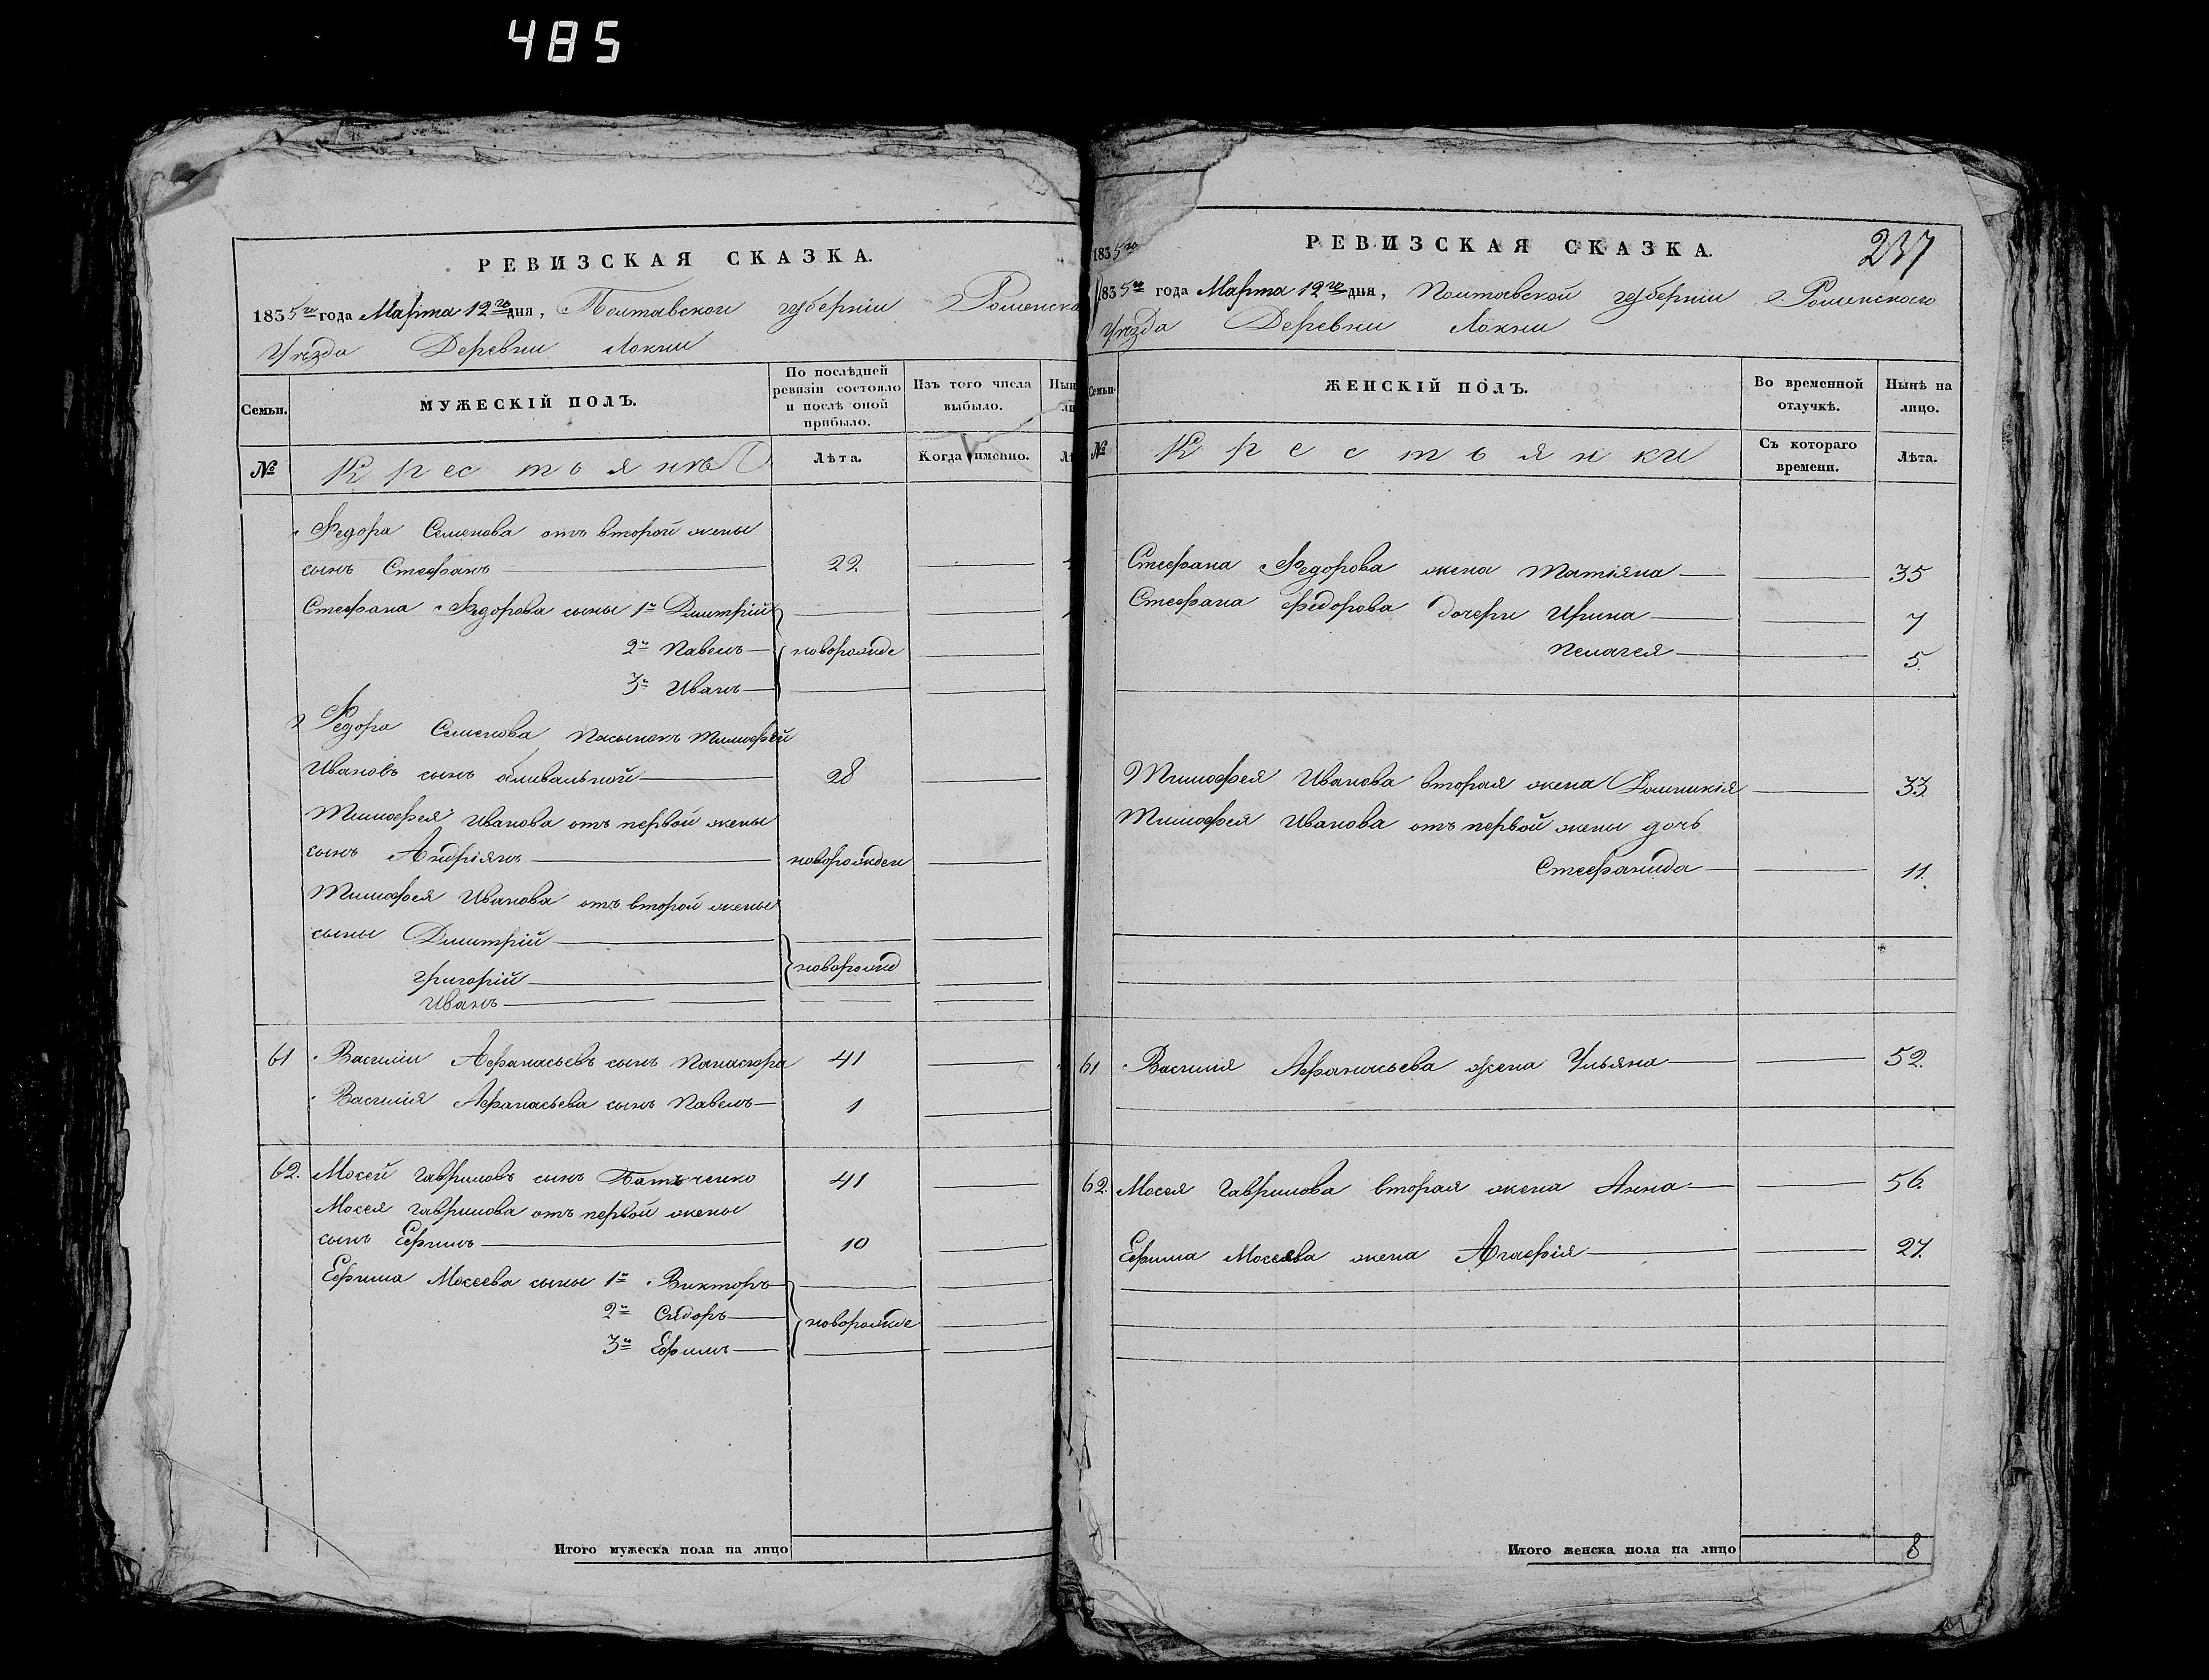 485
РЕВИЗСКАЯ СКАЗКА.
1835го года Марта 12го дня, Полтавской губерніи Роменска
Уѣзда Деревни Локни
Семьи.
МУЖЕСКІЙ ПОЛЪ.
По послѣдней ревизіи состояло и послѣ оной прибыло.
Изъ того числа выбыло.
№
Крестьянѣ
Лѣта.
Когда именно.
Федора Семенова отъ второй жены
сынъ Стефанъ 22.
Стефана Федорова сыны 1й Дмитрій
2й Павелъ новорожде
3й Иванъ
Федора Семенова пасынокъ Тимофей
Ивановъ сынъ 28
Тимофея Иванова отъ первой жены
сынъ Андріянъ новорожден
Тимофея Иванова отъ второй жены
сыны Дмитрій
Григорій новорожд
Иванъ
61 Василій Афанасьевъ сынъ 41
Василія Афанасьева сынъ Павелъ 1
62. Мосей Гавриловъ сынъ Батъченко 41
Мосея Гаврилова отъ первой жены
сынъ Ефимъ 10
Ефима Мосеева сыны 1й Викторъ
2й Сидоръ новорожде
3й Ефимъ
Итого мужеска пола на лицо
1835го
РЕВИЗСКАЯ СКАЗКА.
237
1835го года Марта 12го дня, Полтавской губерніи Роменскаго
Уѣзда Деревни Локни
Семьи.
ЖЕНСКІЙ ПОЛЪ.
Во временной отлучкѣ.
Нынѣ на лицо.
№
Крестьянки
Съ котораго времени.
Лѣта.
Стефана Федорова жена Татіяна 35
Стефана Федорова дочери Ирина 7
Пелагея 5.
Тимофея Иванова вторая жена Домникія 33.
Тимофея Иванова отъ первой жены дочь
Стефанида 11.
61 Василія Афанасьева жена Ульяна 52.
62. Мосея Гаврилова вторая жена Анна 56.
Ефима Мосеева жена Агафія 27.
Итого женска пола на лицо 8